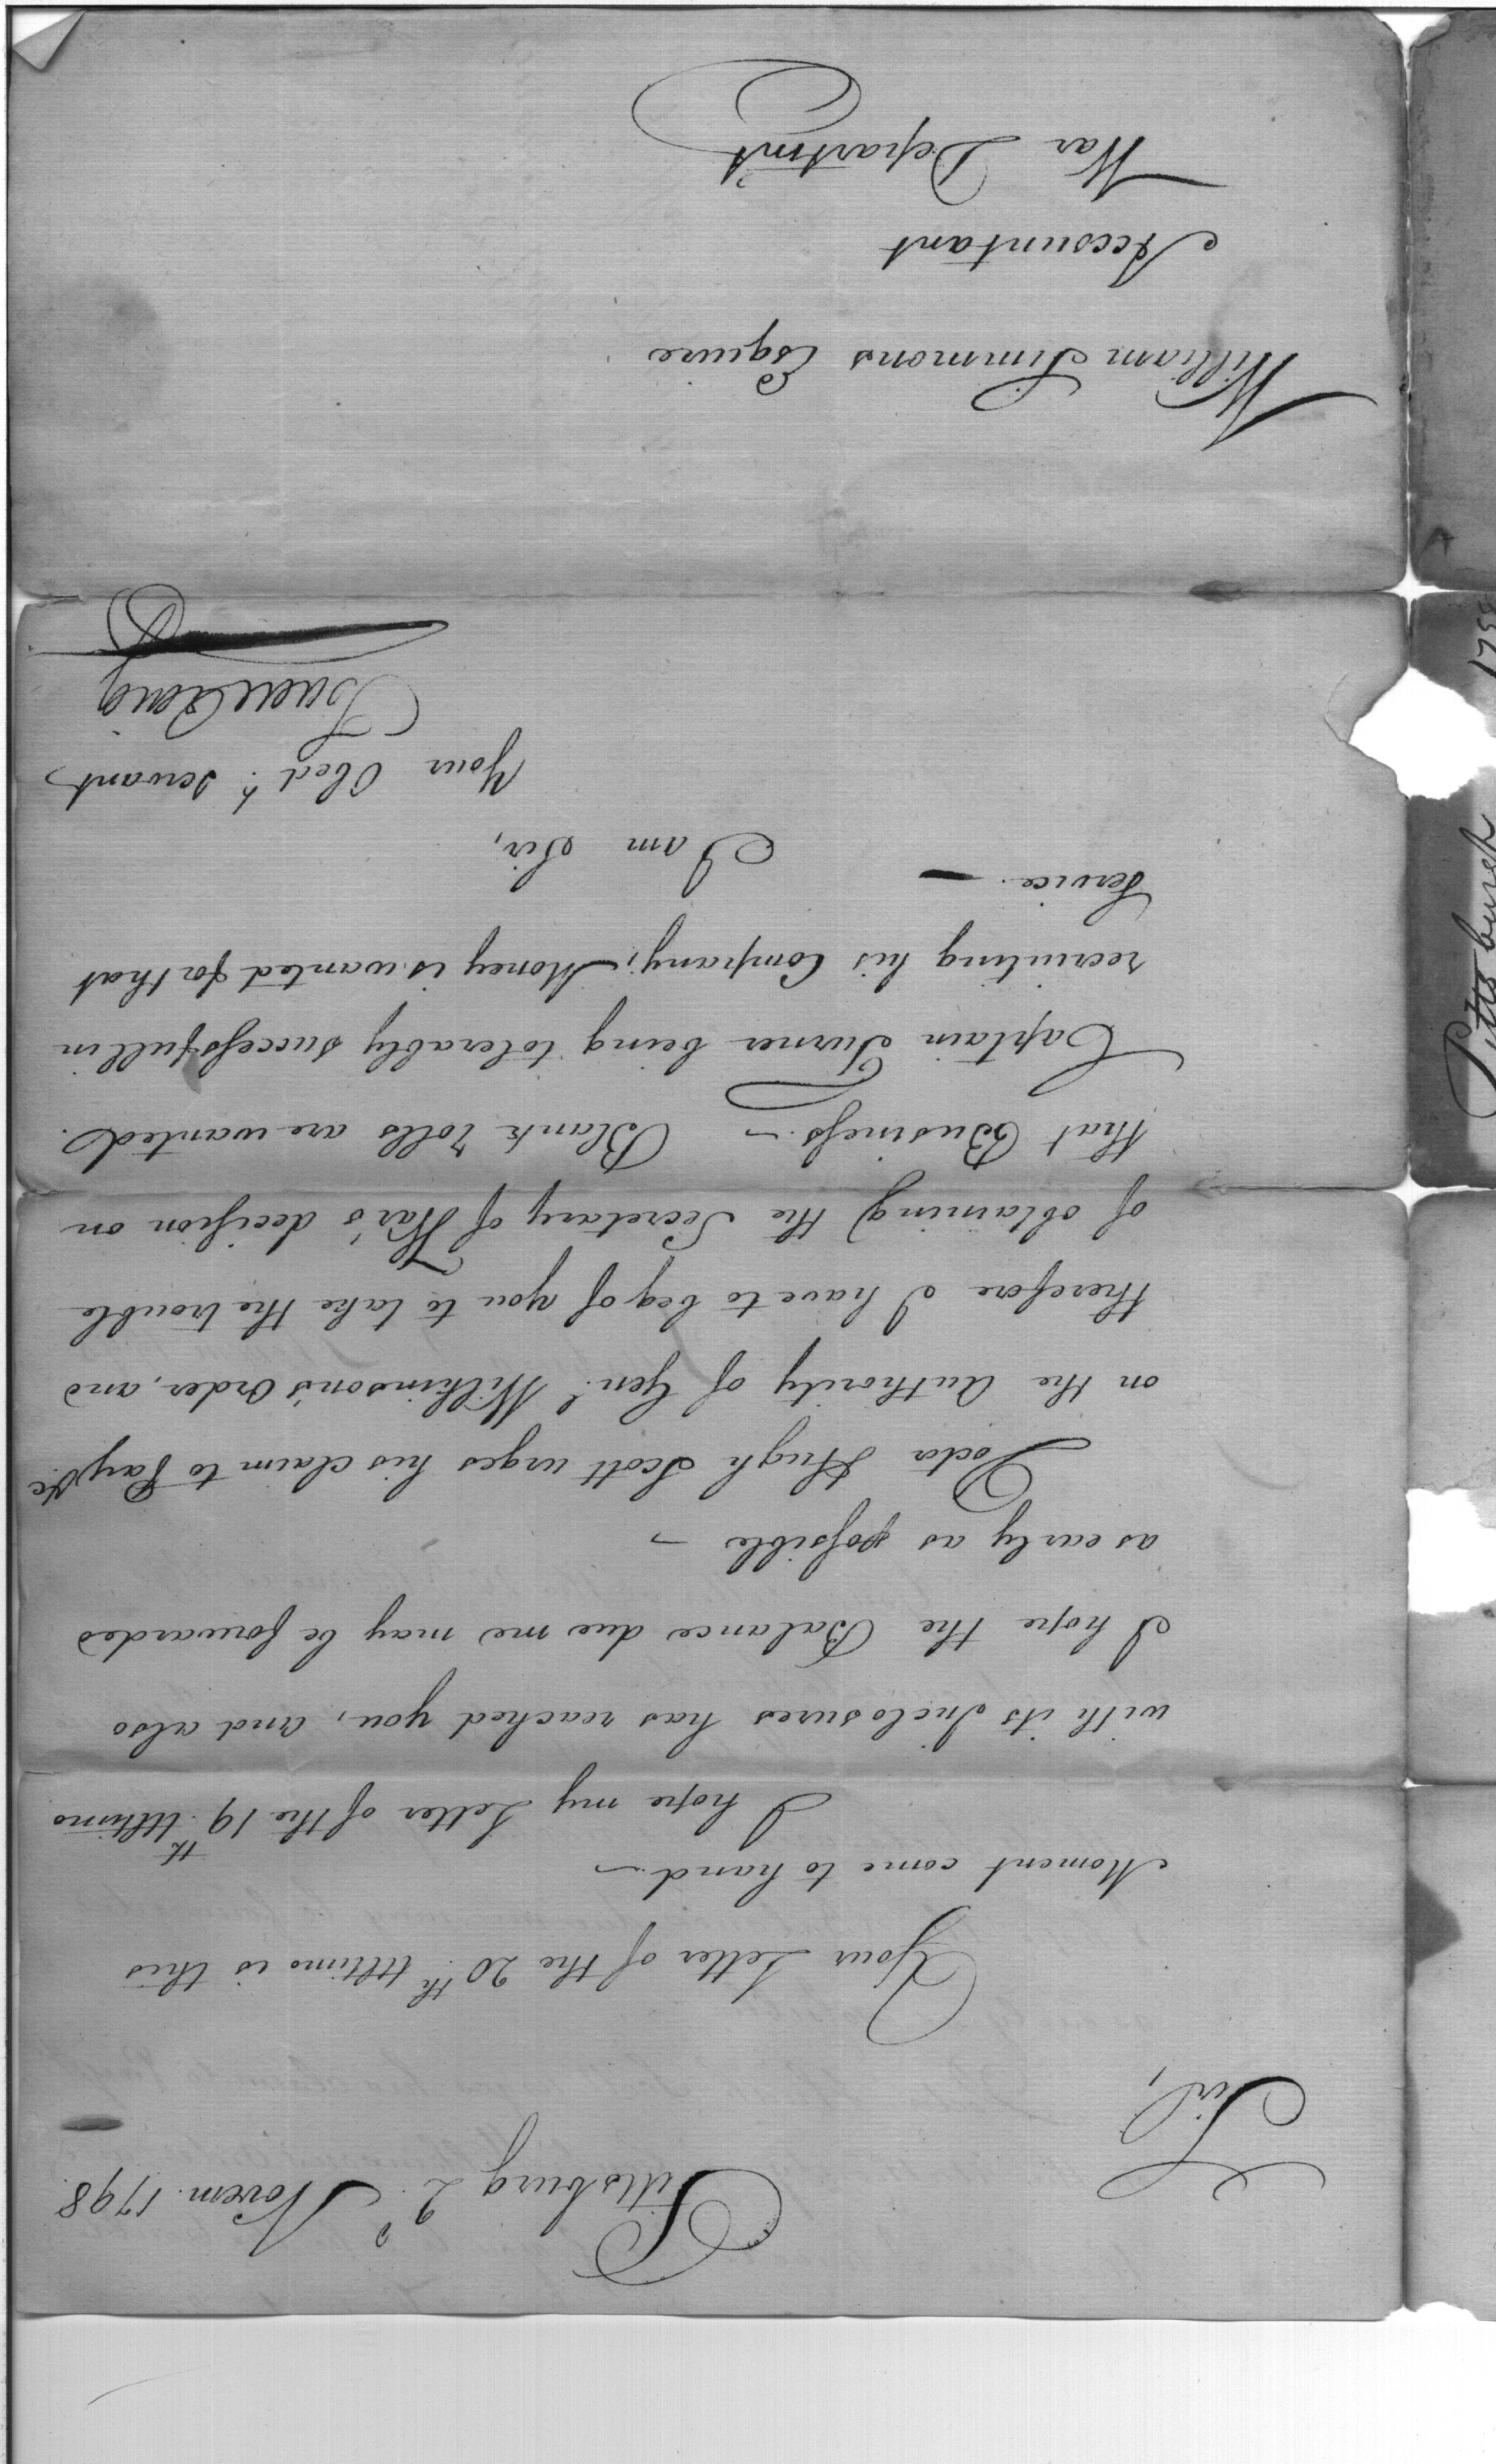 Pittsburg 2d Novem. 1798.
Sir,
Your Letter of the 20th Ultimo is this
Moment come to hand. –
I hope my Letter of the 19th Ultimo
with its Inclosures has reached you, and also
I hope the Balance due me may be forwarded
as early as possible –
Doctor Hugh Scott urges his claim to Pay &c
on the Authority of Genl. Wilkinson's Order, and
therefore I have to beg of you to take the trouble
of obtaining the Secretary of War's decision on
that Business. – Blank rolls are wanted.
Captain Turner being tolerably successfull in
recruiting his Company, Money is wanted for that
Service. –
I am Sir,
Your Obedt. Servant
Isaac Craig
William Simmons Esquire
Accountant
War Departmt.
Pittsburgh
1798